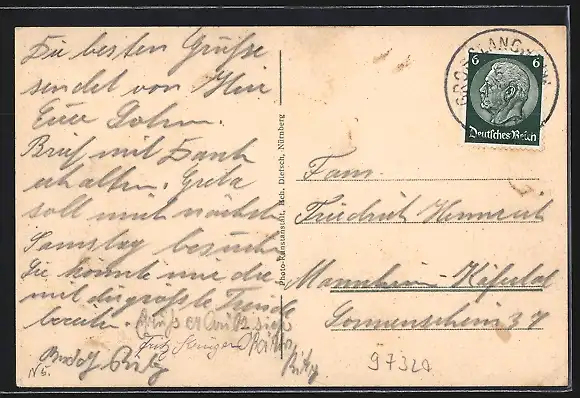 Die besten Grüße
sendet von Hier
Euer Sohn.
Brief mit Dank
erhalten. Greta
soll mich nächsten
Samstag besuchen
Sie könnte mir da
mit die größte Freude
bereiten.
Rudolf
N5.
Photo-Kunstanstalt, Hch. Dietsch, Nürnberg
6 6
Deutsches Reich
Fam.
Friedrich Heinrich
Mannheim-Käfertal
Sonnenschein 37
97320